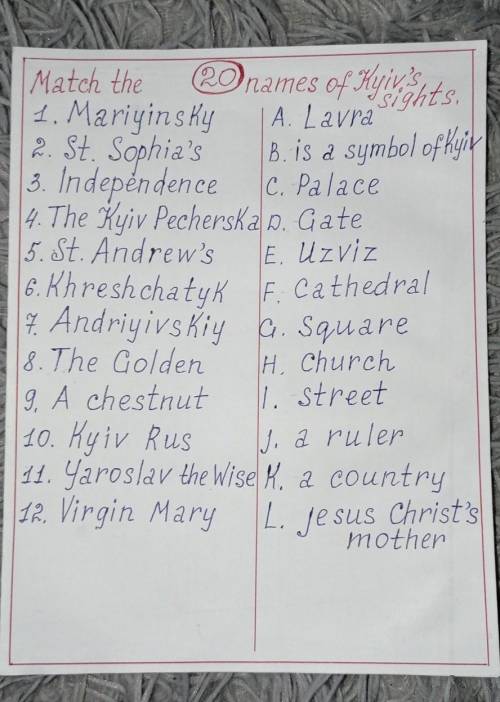 Match the 20 names of Kyiv's sights.
1. Mariyinsky
2. St. Sophia's
3. Independence
4. The Kyiv Pecherska
5. St. Andrew's
6. Khreshchatyk
7. Andriyivskiy
8. The Golden
9. A chestnut
10. Kyiv Rus
11. Yaroslav the Wise
12. Virgin Mary
A. Lavra
B. is a symbol of Kyiv
C. Palace
D. Gate
E. Uzviz
F. Cathedral
G. Square
H. Church
I. street
J. a ruler
K. a country
L. Jesus Christ's
mother